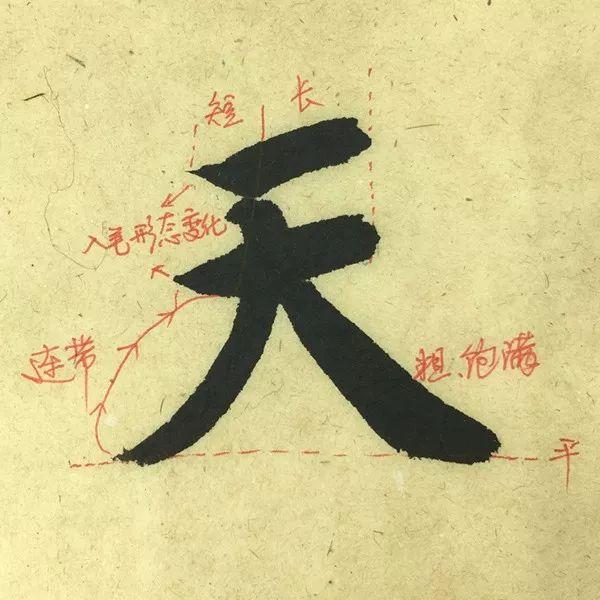 短 长
天
入笔形态变化
连带
粗、饱满
平